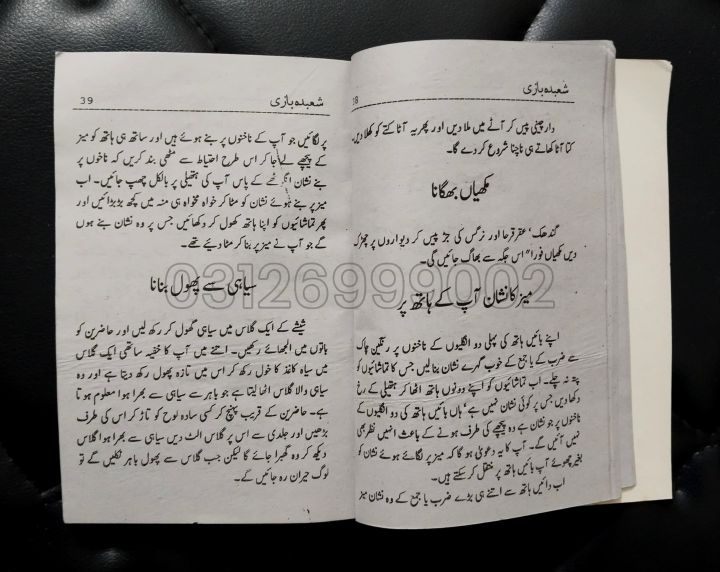 38
شعبدہ بازی
دار چینی پیس کر آٹے میں ملا دیں اور پھر یہ آٹا کتے کو کھلا دیں۔
کتا آٹا کھاتے ہی ناچنا شروع کر دے گا۔
مکھیاں بھگانا
گندھک' عقر قرحا اور نرگس کی جڑ پیس کر دیواروں پر چھڑک
دیں مکھیاں فورا" اس جگہ سے بھاگ جائیں گی۔
میز کا نشان آپ کے ہاتھ پر
اپنے بائیں ہاتھ کی پہلی دو انگلیوں کے ناخنوں پر رنگین چاک
سے ضرب کے یا جمع کے خوب گہرے نشان بنا لیں جس کا تماشائیوں کو
پتہ نہ چلے۔ اب تماشائیوں کو اپنے دونوں ہاتھ اٹھا کر ہتھیلی کے رخ
دکھا دیں جس پر کوئی نشان نہیں ہے' ہاں بائیں ہاتھ کی دو انگلیوں کے
ناخنوں پر جو نشان ہے وہ پیچھے کی طرف ہونے کے باعث انہیں نظر بھی
نہیں آئیں گے۔ آپ کا یہ دعویٰ ہو گا کہ میز پر لگائے ہوئے نشان کو
بغیر چھوئے آپ بائیں ہاتھ پر منتقل کر سکتے ہیں۔
اب دائیں ہاتھ سے اتنے ہی بڑے ضرب یا جمع کے وہ نشان میز
39
شعبدہ بازی
پر لگائیں جو آپ کے ناخنوں پر بنے ہوئے ہیں اور ساتھ ہی ہاتھ کو میز
کے پیچھے لے جا کر اس طرح احتیاط سے مٹھی بند کریں کہ ناخوں پر
بنے نشان انگوٹھے کے پاس آپ کی ہتھیلی پر بالکل چھپ جائیں۔ اب
میز پر بنے ہوئے نشان کو مٹا کر خواہ مخواہ ہی منہ میں کچھ بڑبڑائیں اور
پھر تماشائیوں کو اپنا ہاتھ کھول کر دکھائیں جس پر وہ نشان بنے ہوں
گے جو آپ نے میز پر بنا کر مٹا دیئے تھے۔
سیاہی سے پھول بنانا
شیشے کے ایک گلاس میں سیاہی گھول کر رکھ لیں اور حاضرین کو
باتوں میں الجھائے رکھیں۔ اتنے میں آپ کا خفیہ ساتھی ایک گلاس
میں سیاہ کاغذ کا خول رکھ کر اس میں تازہ پھول رکھ دیتا ہے اور وہ
سیاہی والا گلاس اٹھا لیتا ہے جو باہر سے سیاہی سے بھرا ہوا معلوم ہوتا
ہے۔ حاضرین کے قریب پہنچ کر کسی سادہ لوح کو تاڑ کر اس کی طرف
بڑھیں اور جلدی سے اس پر گلاس الٹ دیں سیاہی سے بھرا ہوا گلاس
دیکھ کر وہ گھبرا جائے گا لیکن جب گلاس سے پھول باہر نکلیں گے تو
لوگ حیران رہ جائیں گے۔
03126999002